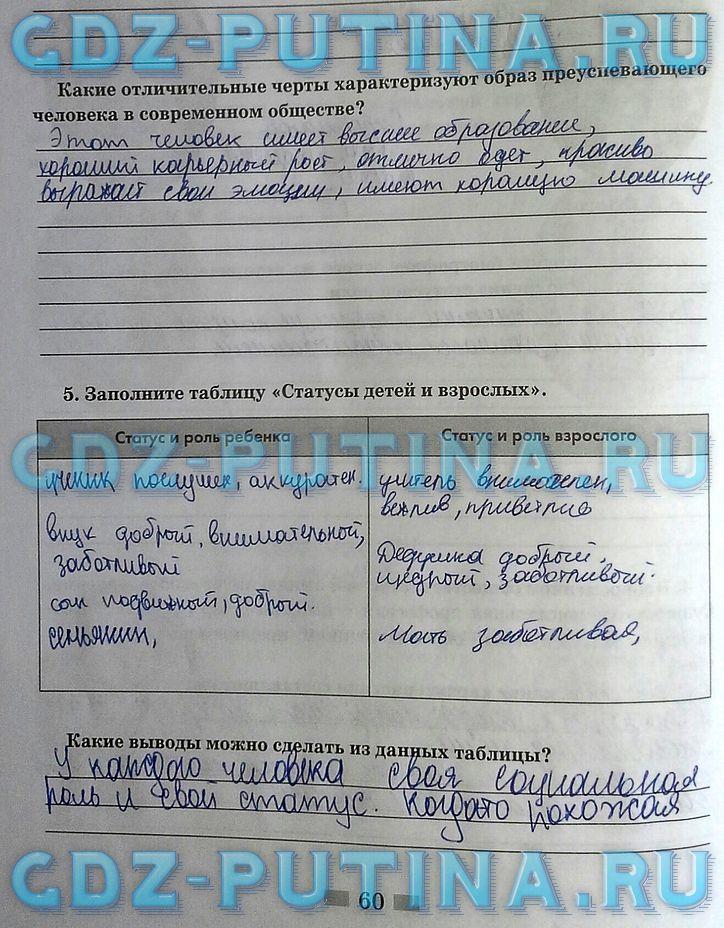 GDZ-PUTINA.RU
Какие отличительные черты характеризуют образ преуспевающего
человека в современном обществе?
Этот человек имеет высшее образование,
хороший карьерный рост, отлично одет, красиво
выражает свои эмоции, имеют хорошую машину.
5. Заполните таблицу «Статусы детей и взрослых».
Статус и роль ребенка
Статус и роль взрослого
GDZ-PUTINA.RU
ученик послушен, аккуратен.
учитель внимателен,
вежлив, приветлив
внук добрый, внимательной,
заботливый
Дедушка добрый,
щедрый, заботливый.
сын подвижный, добрый.
семьянин,
Мать заботливая,
Какие выводы можно сделать из данных таблицы?
У каждого человека своя социальная
роль и свой статус. Когдато похожая
GDZ-PUTINA.RU
60